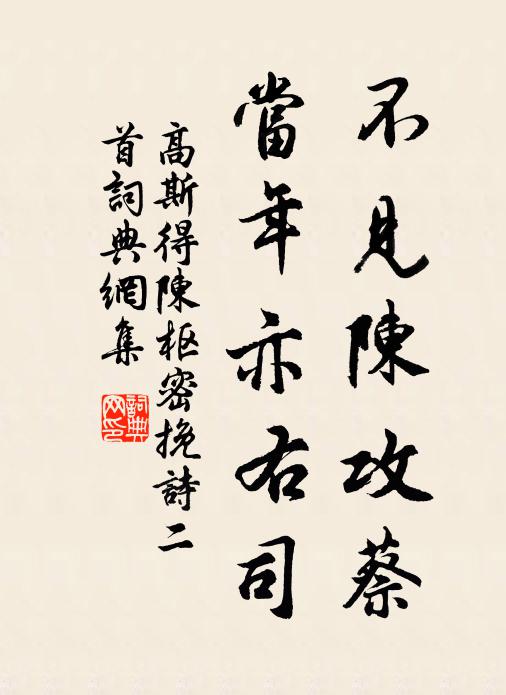 不見陳攻蔡
當年亦右司
高斯得陳樞密挽詩二
首詞典網集
詞典
网印